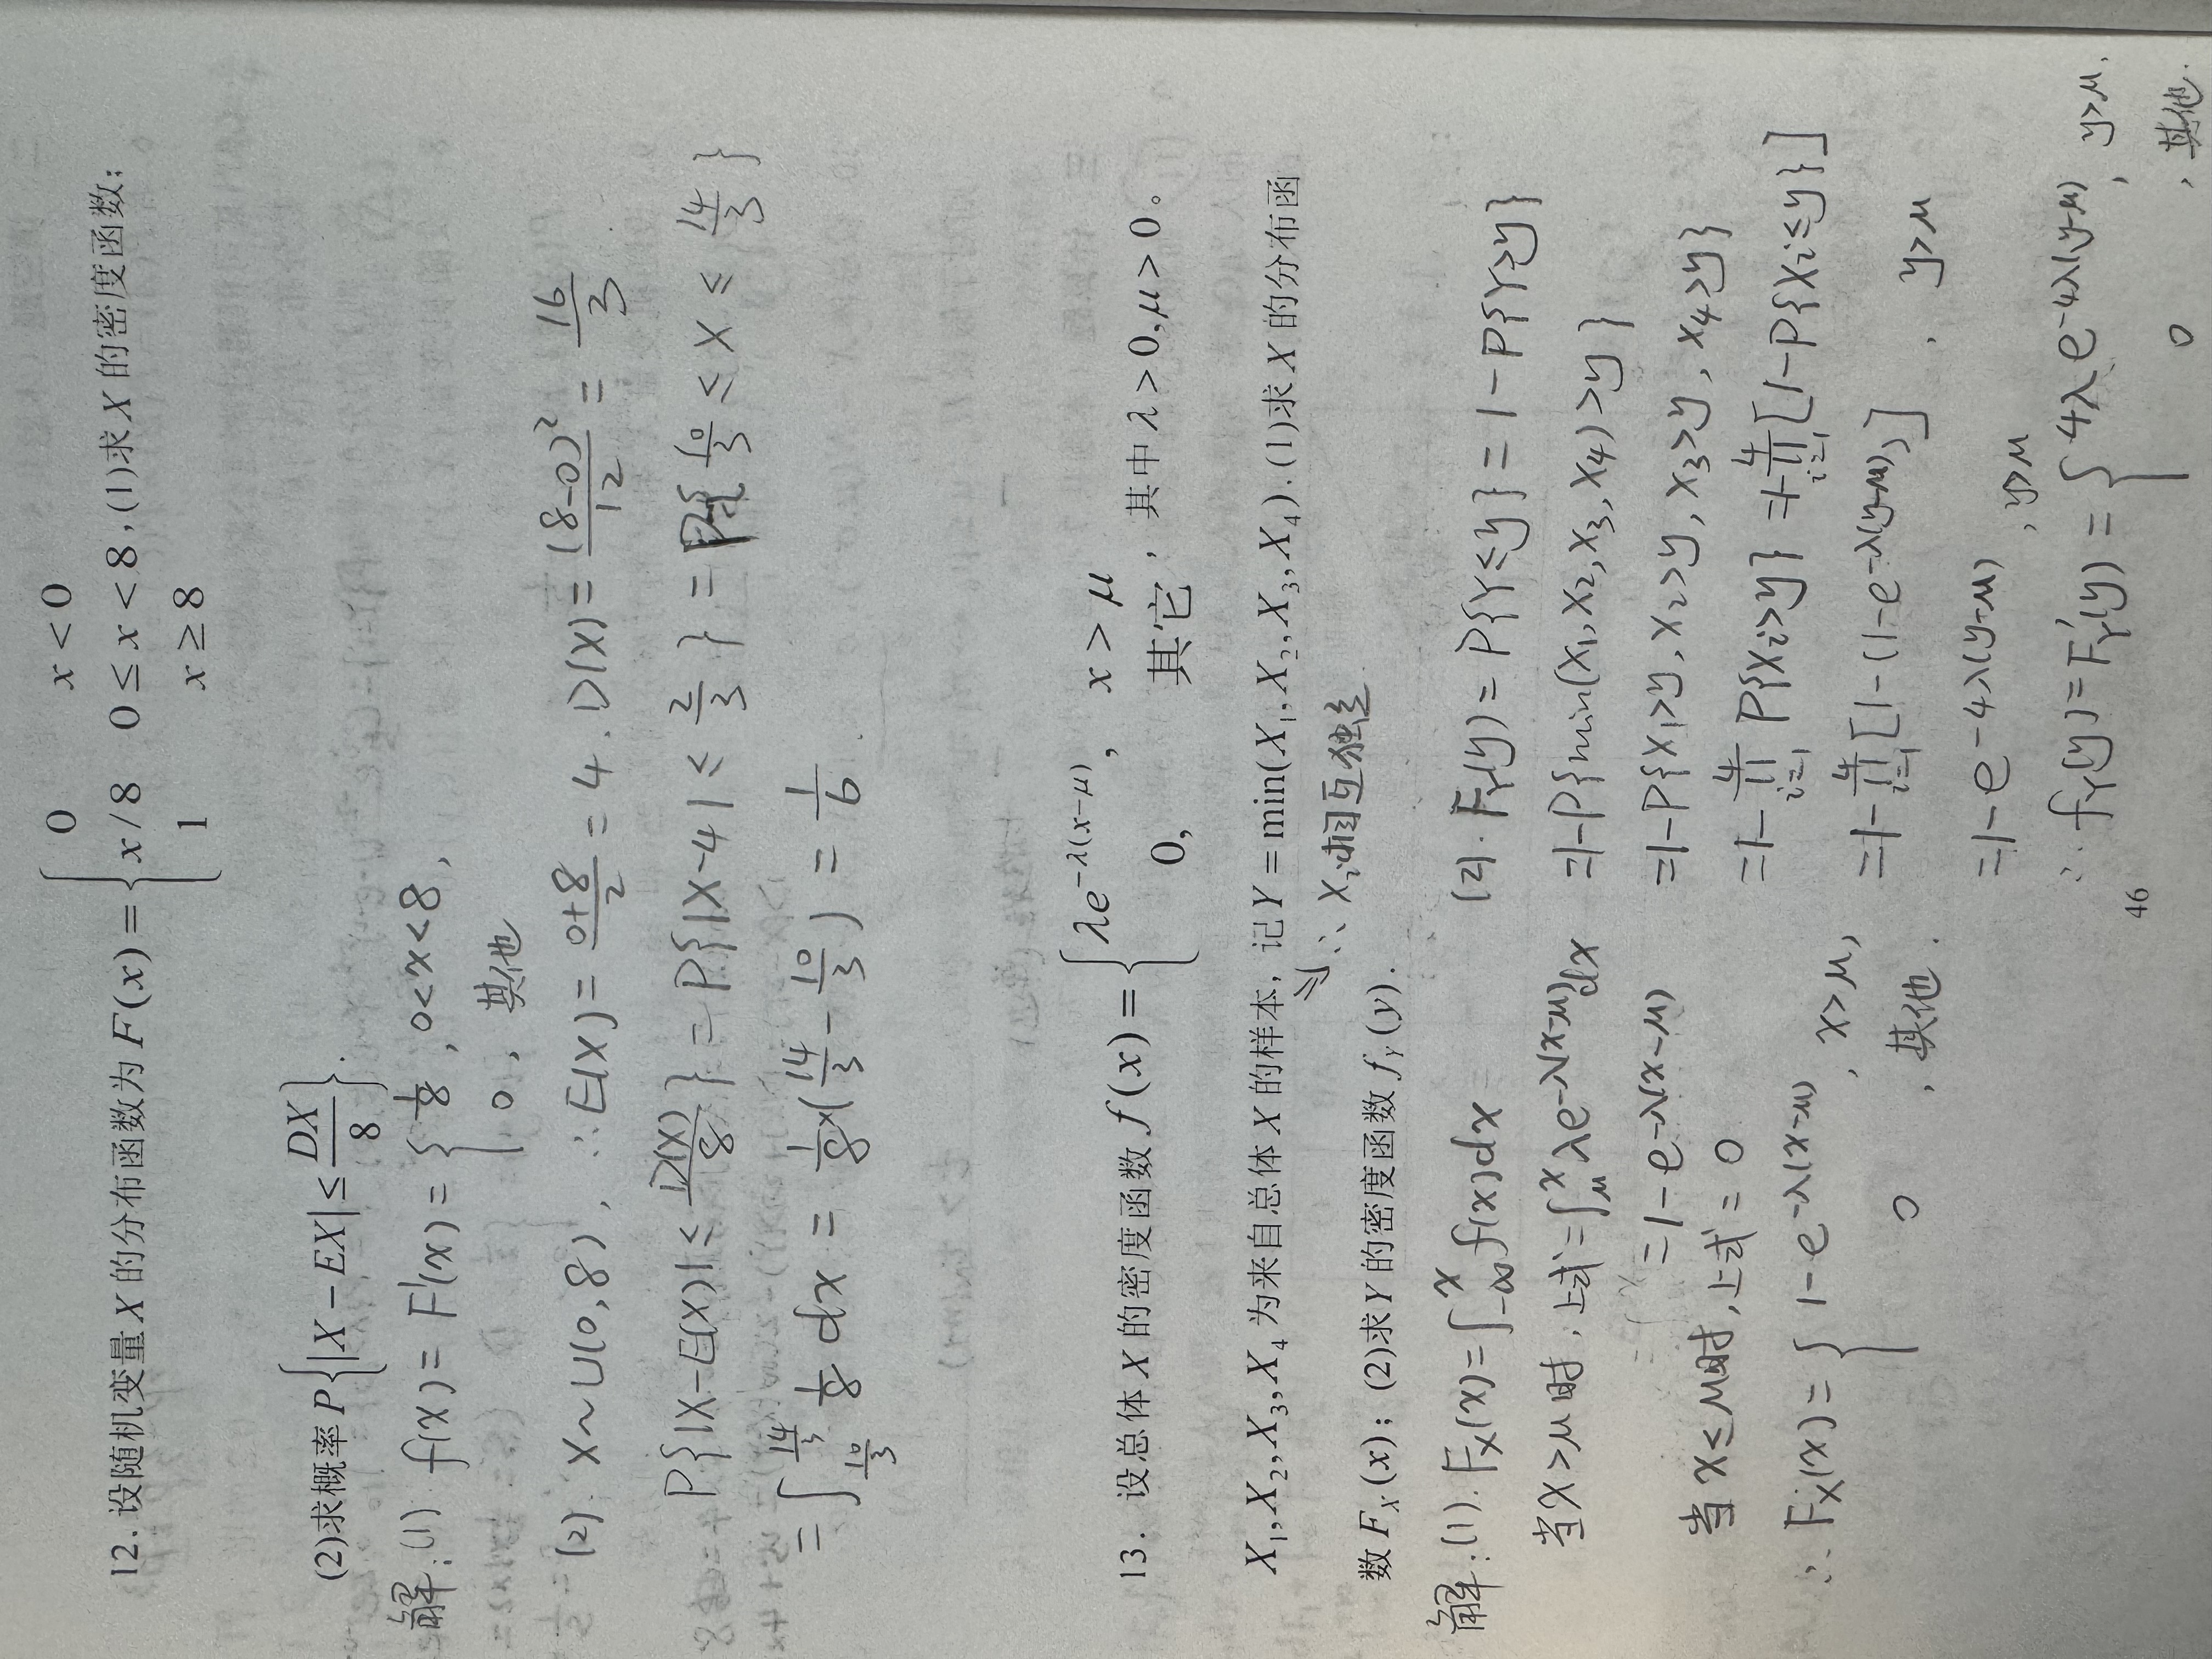 12. 设随机变量 X 的分布函数为 F(x) = { 0  x < 0 ; x/8  0 ≤ x < 8 ; 1  x ≥ 8 , (1)求 X 的密度函数;
(2)求概率 P{|X − EX| ≤ DX/8}.
解: (1) f(x) = F'(x) = { 1/8 , 0<x<8 , ; 0 , 其他
(2). X~U(0,8), ∴E(X) = (0+8)/2 = 4. D(X) = (8-0)²/12 = 16/3
P{|X-E(X)| ≤ D(X)/8} = P{|X-4| ≤ 2/3} = P{10/3 ≤ X ≤ 14/3}
= ∫_{10/3}^{14/3} 1/8 dx = 1/8×(14/3 - 10/3) = 1/6.
13. 设总体 X 的密度函数 f(x) = { λe^{−λ(x−μ)}, x > μ ; 0, 其它 , 其中 λ > 0, μ > 0 。
X₁, X₂, X₃, X₄ 为来自总体 X 的样本, 记 Y = min(X₁, X₂, X₃, X₄). (1)求 X 的分布函
∴ Xᵢ相互独立.
数 F_X(x); (2)求 Y 的密度函数 f_Y(y).
解: (1). F_X(x) = ∫_{-∞}^{x} f(x)dx
当x>μ时, 上式=∫_{μ}^{x} λe^{-λ(x-μ)}dx
=1-e^{-λ(x-μ)}
当x≤μ时, 上式=0
∴ F_X(x) = { 1-e^{-λ(x-μ)}, x>μ, ; 0 , 其他.
(2). F_Y(y) = P{Y≤y} = 1-P{Y>y}
=1-P{min(X₁,X₂,X₃,X₄)>y}
=1-P{X₁>y, X₂>y, X₃>y, X₄>y}
=1-∏_{i=1}^{4} P{Xᵢ>y} =1-∏_{i=1}^{4}[1-P{Xᵢ≤y}]
=1-∏_{i=1}^{4}[1-(1-e^{-λ(y-μ)})] , y>μ
=1-e^{-4λ(y-μ)} , y>μ
∴ f_Y(y)=F_Y'(y) = { 4λe^{-4λ(y-μ)}, y>μ, ; 0 , 其他.
46